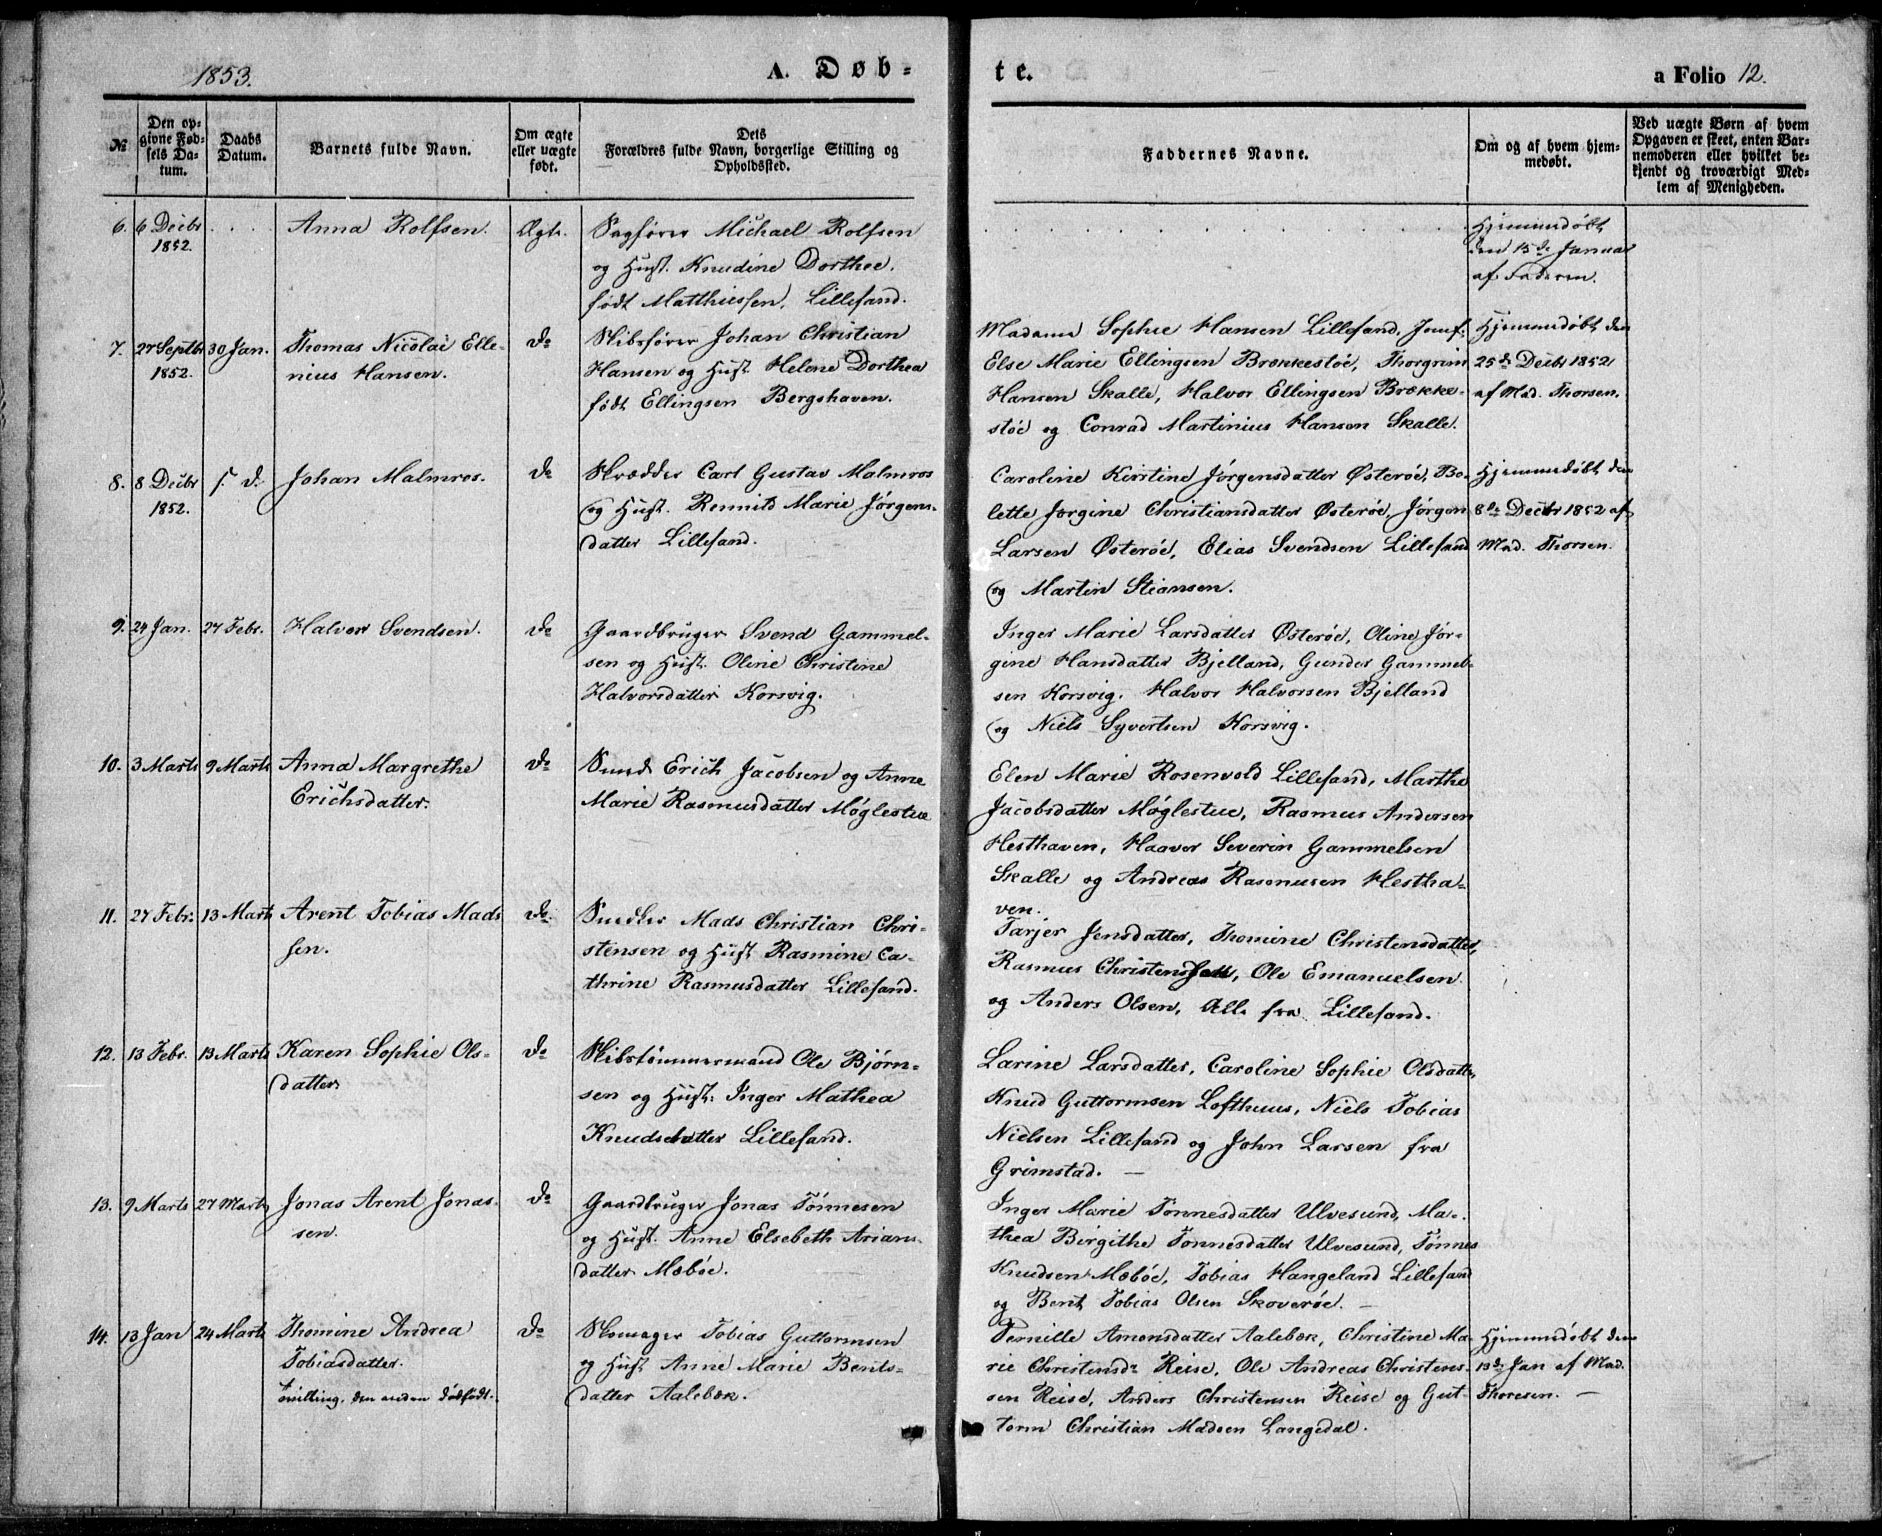 1853.
A. Døb-
te.
a Folio 12.
№
Den op-
givne Fød-
sels Da-
tum.
Daabs
Datum.
Barnets fulde Navn.
Om ægte
eller uægte
født.
Dets
Forældres fulde Navn, borgerlige Stilling og
Opholdssted.
Faddernes Navne.
Om og af hvem hjem-
medøbt.
Ved uægte Børn af hvem
Opgaven er skeet, enten Bar-
nemoderen eller hvilket be-
kjendt og troværdigt Med-
lem af Menigheden.
6.
6 Decbr
1852.
. . . .
Anna Rolfsen.
Ægte.
Sagfører Michael Rolfsen
og Hust. Knudine Dorthee.
født Matthiessen, Lillesand.
Hjemmedøbt
den 15de Januar
af Faderen.
7.
27 Septbr
1852.
30 Jan.
Thomas Nicolai Elle-
nius Hansen.
do
Skibsfører Johan Christian
Hansen og Hust. Helene Dorthea
født Ellingsen Bergshaven.
Madame Sophie Hansen Lillesand, Jomf:
Else Marie Ellingsen Brækkestøe, Thorgrim
Hansen Skalle, Halvor Ellingsen Brække-
støe og Conrad Martinius Hansen Skalle.
Hjemmedøbt den
25de Decbr 1852
af Mad. Thorsen.
8.
8 Decbr
1852.
s. d.
Johan Malmros.
do
Skrædder Carl Gustav Malmros
og Hust. Rennild Marie Jørgens-
datter Lillesand.
Caroline Kirstine Jørgensdatter Østerøe, Bo-
lette Jørgine Christiansdatter Østerøe, Jørgen
Larsen Østerøe, Elias Svendsen Lillesand
og Martin Stiansen.
Hjemmedøbt den
8de Decbr 1852 af
Mad. Thorsen.
9.
24 Jan.
27 Febr.
Halvor Svendsen.
do
Gaardbruger Svend Gammel-
sen og Hust. Oline Christine
Halvorsdatter Korsvig.
Inger Marie Larsdatter Østerøe, Oline Jør-
gine Hansdatter Bjelland, Gunder Gammel-
sen Korsvig. Halvor Halvorsen Bjelland
og Niels Syvertsen Korsvig.
10.
3 Marts
9 Marts
Anna Margrethe
Erichsdatter.
do
Smed Erich Jacobsen og Anne
Marie Rasmusdatter Møglestue
Elen Marie Rosenvold Lillesand, Marthe
Jacobsdatter Møglestue, Rasmus Andersen
Hesthaven, Haavor Severin Gammelsen
Skalle og Andreas Rasmusen Hestha-
ven.
11.
27 Febr.
13 Marts
Arent Tobias Mads
sen.
do
Snedker Mads Christian Chri-
stensen og Hust Rasmine Ca-
thrine Rasmusdatter Lillesand.
Tarjer Jensdatter, Thomine Christensdatter,
Rasmus Christensen, Ole Emanuelsen
og Anders Olsen, Alle fra Lillesand.
12.
13 Febr.
13 Marts
Karen Sophie Ols-
datter
do
Skibstømmermand Ole Bjørn-
sen og Hust. Inger Mathea
Knudsdatter Lillesand.
Larine Larsdatter, Caroline Sophie Olsdatter,
Knud Guttormsen Lofthuus, Niels Tobias
Nielsen Lillesand og John Larsen fra
Grimstad. —
13.
9 Marts
27 Marts
Jonas Arent Jonas-
sen.
do
Gaardbruger Jonas Tønnesen
og Hust. Anne Elsebeth Arians-
datter Mæbøe.
Inger Marie Tønnesdatter Ulvesund, Ma-
thea Birgithe Tønnesdatter Ulvesund, Tønnes
Knudsen Mæbøe, Tobias Hangeland Lillesand
og Bernt Tobias Olsen Skoverøe. —
14.
13 Jan
24 Marts
Thomine Andrea
Tobiasdatter.
tvilling, den anden dødfødt.
do
Skomager Tobias Guttormsen
og Hust Anne Marie Bents-
datter Aalebæk.
Pernille Amonsdatter Aalebæk, Christine Ma-
rie Christensdr Reise, Ole Andreas Christens-
sen Reise, Anders Christensen Reise og Gut-
torm Christian Madsen Langedal.
Hjemmedøbt den
13de Jan af Mad.
Thoresen. —